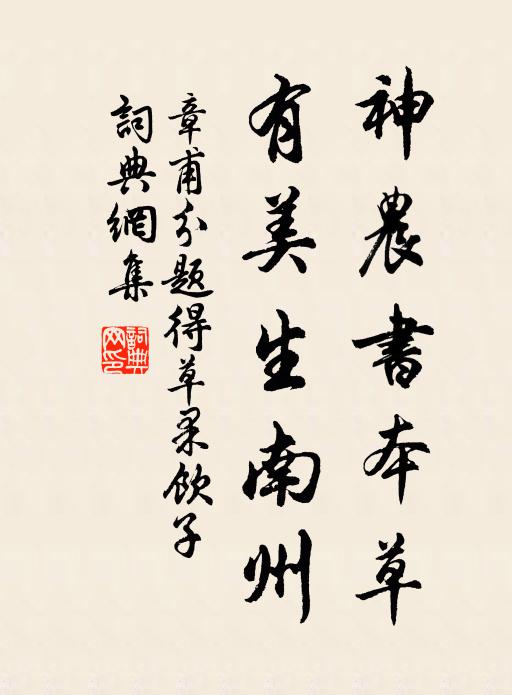 神農書本草
有美生南州
章甫分題得草果飲子
詞典網集
詞典网印